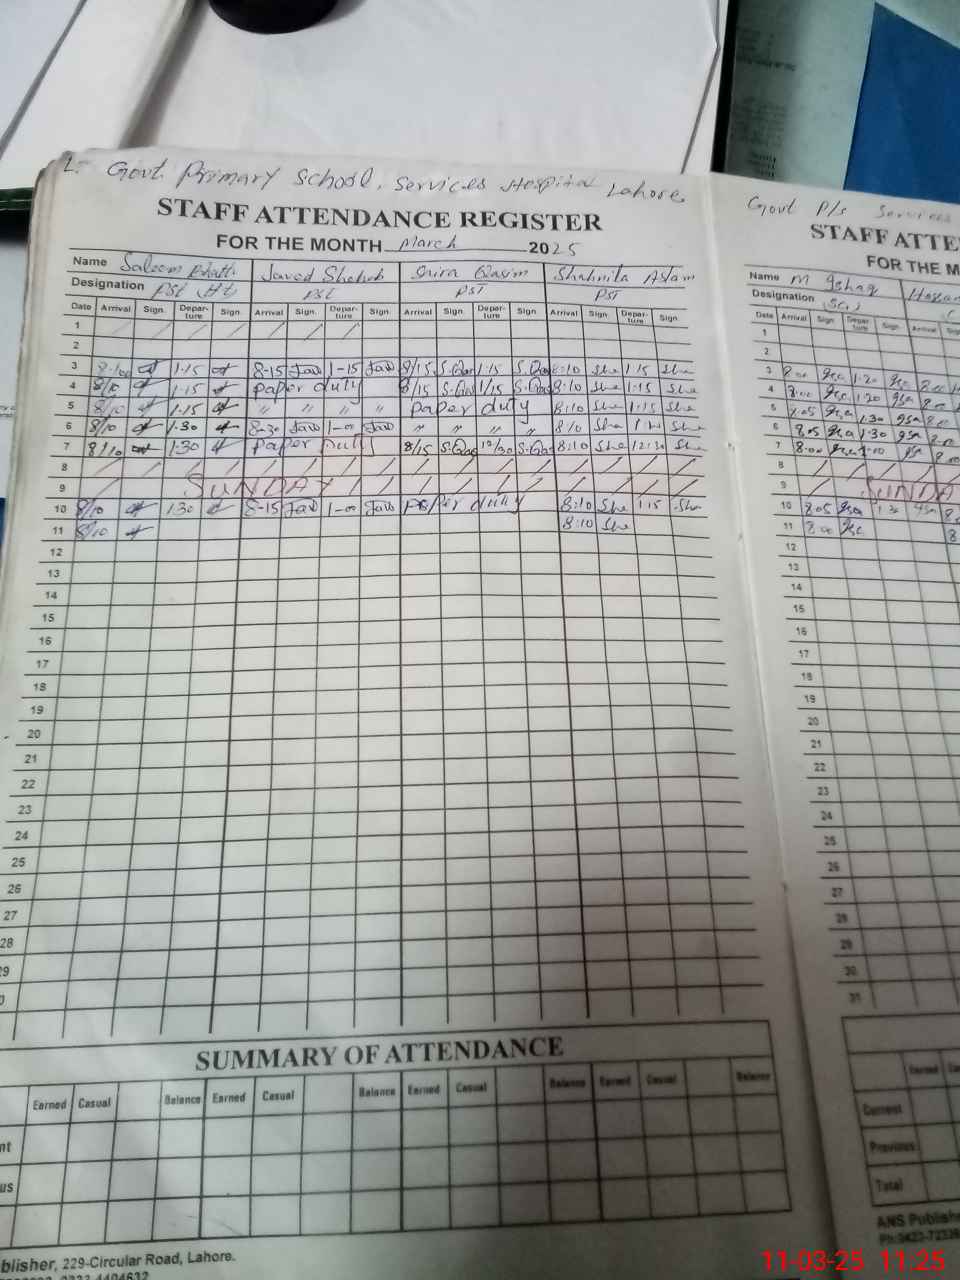 Govt. Primary School, Services Hospital Lahore
STAFF ATTENDANCE REGISTER
FOR THE MONTH March 2025
Name Saleem Bhatti Javed Shahab Qasim Shahnila Aslam
Designation PST Ht PST PST PST
Date Arrival Sign. Depar-ture Sign. Arrival Sign. Depar-ture Sign. Arrival Sign. Depar-ture Sign. Arrival Sign. Depar-ture Sign.
1
2
3 8:00 1:15 8-15 Jav 1-15 Jav 8/15 S.Qas 1:15 S.Qas 8:10 She 1:15 She
4 8/10 1:15 paper duty 8/15 S.Qas 1/15 S.Qas 8:10 She 1:15 She
5 8/10 1:15 " " " " paper duty 8:10 She 1:15 She
6 8/10 1:30 8-30 Jav 1-00 Jav " " " " 8/10 She She
7 8/10 1:30 Paper Duty 8/15 S.Qas 12/30 S.Qas 8:10 She 12:30 She
8
9 SUNDAY
10 8/10 1:30 8-15 Jav 1-00 Jav paper duty 8:10 She 1:15 She
11 8/10 8:10 She
12
13
14
15
16
17
18
19
20
21
22
23
24
25
26
27
28
29
SUMMARY OF ATTENDANCE
Earned Casual Balance Earned Casual Balance Earned Casual Balance Earned Casual Balance
nt
us
blisher, 229-Circular Road, Lahore.
Govt P/s Services
STAFF ATTE
FOR THE M
Name M Ishaq Hassan
Designation
Date Arrival Sign. Depar-ture Sign. Arrival Sign.
1
2
3 8:00 1-20 8:00
4 8:00 1:20 8:00
5 8:05 1:30 8:00
6 8:05 1:30 8:00
7 8:00 1:00 8:00
8
9 SUNDA
10 8:05
11 8:00
12
13
14
15
16
17
18
19
20
21
22
23
24
25
26
27
28
29
30
31
Earned
Current
Previous
Total
ANS Publishe
11-03-25 11:25